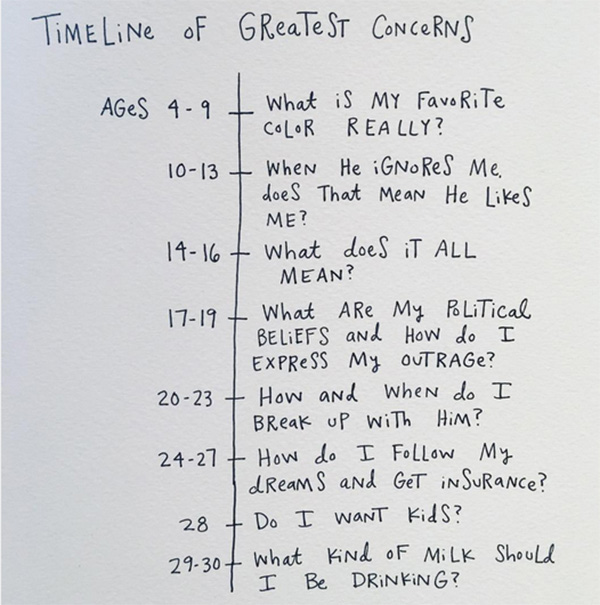 TIMELINE OF GREATEST CONCERNS
AGES 4-9 What is MY FAVORITE
COLOR REALLY?
10-13 WHEN He iGNORES Me,
does That MEAN He Likes
ME?
14-16 What does iT ALL
MEAN?
17-19 What ARe My POLiTical
BELiEFS and How do I
EXPReSS My OUTRAGE?
20-23 How and when do I
BReak UP WiTH HiM?
24-27 How do I FoLLow My
dReaMS and GeT iNSURANCE?
28 Do I WANT Kids?
29-30 What KiND OF MiLK Should
I Be DRiNKiNG?